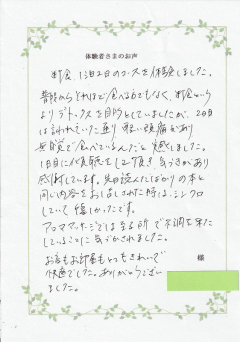 体験者さまのお声
断食、1泊2日のコースを体験しました。
普段からそれほど食べる方でもなく、断食から
よりデトックスを目的としていましたが、2日目
は言われていた通り軽い頭痛があり
無自覚で食べているんだなと感じました。
1日目に体験談をして頂き気づきがあり
感謝しています。先日読んだばかりの本と
同じ内容をお話しされた時は、シンクロ
していて嬉しかったです。
アロママッサージではある所で不調を来た
していることに気づかされました。
お湯もお部屋もとってもきれいで
快適でした。ありがとうござい
ました。
様